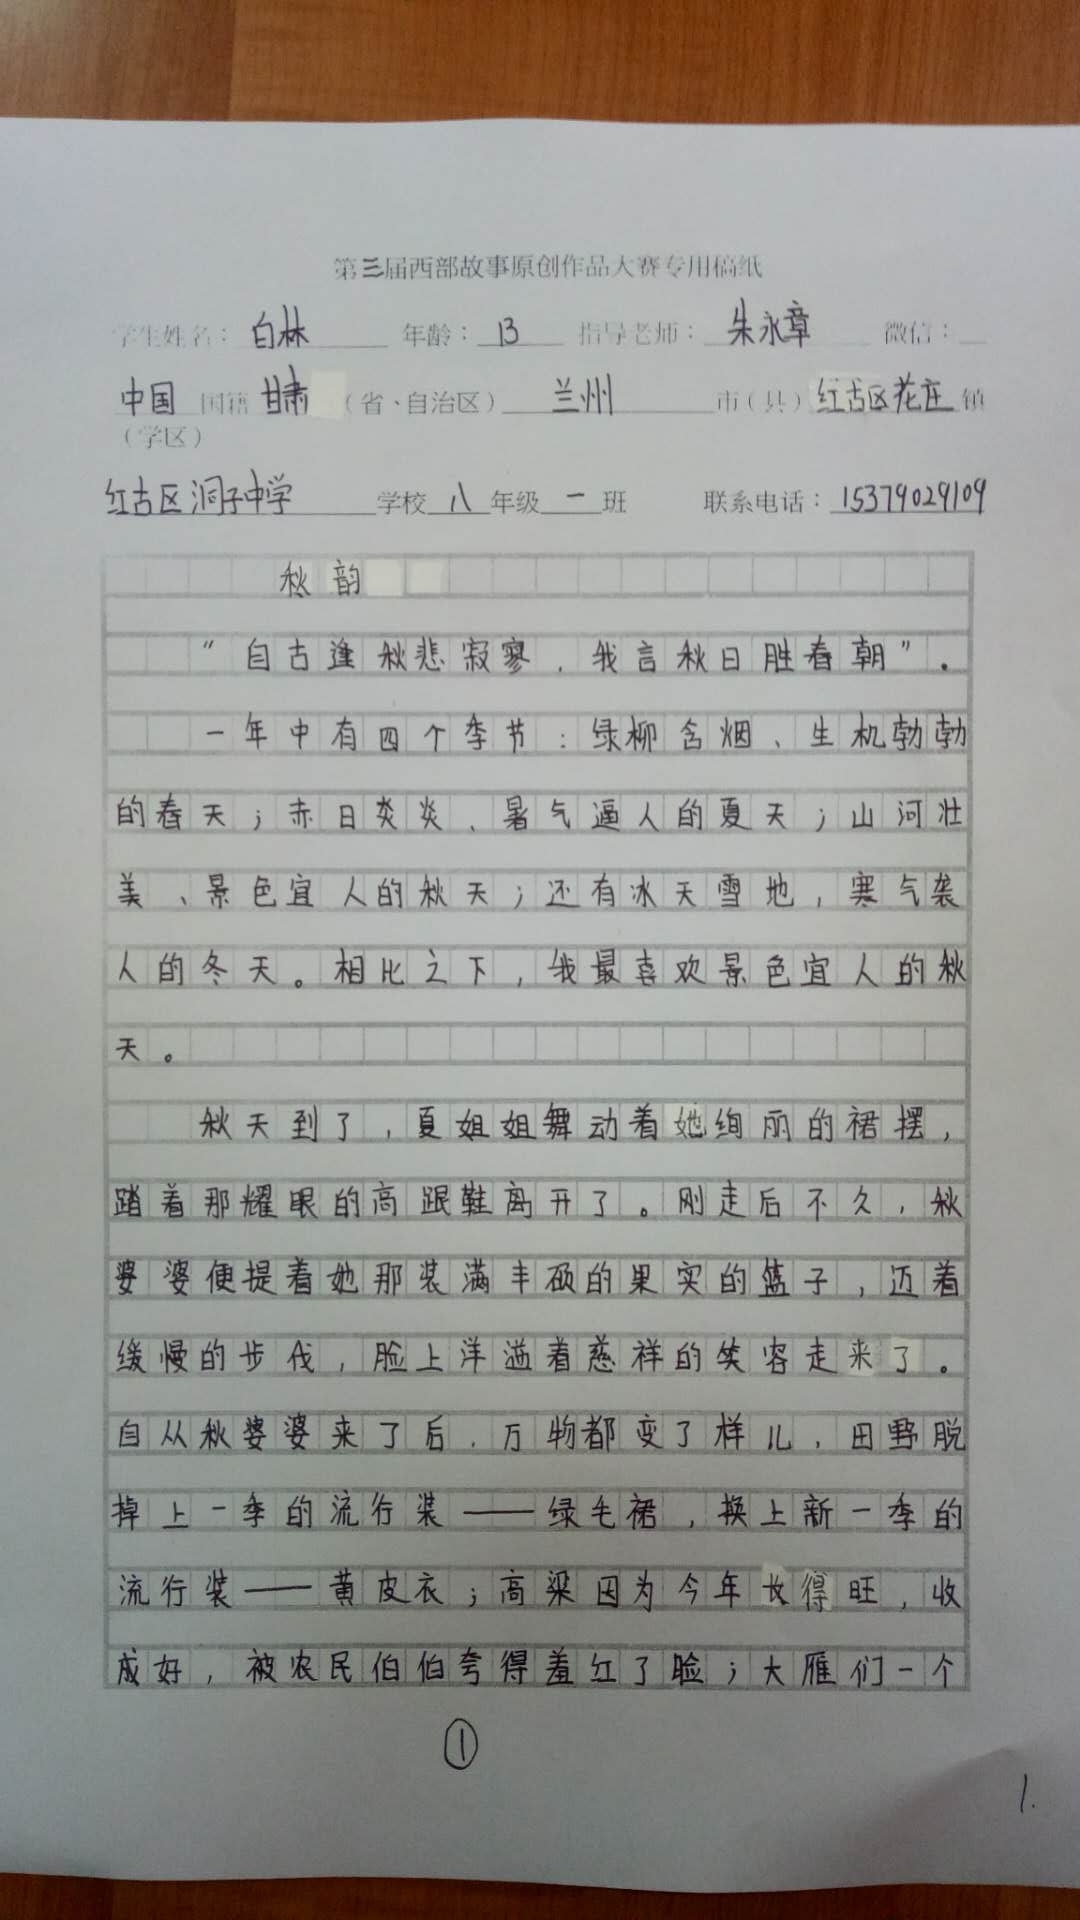 第三届西部故事原创作品大赛专用稿纸
学生姓名：白林 年龄：13 指导老师：朱永章 微信：
中国 国籍 甘肃（省、自治区）兰州 市（县）红古区花庄 镇
（学区）
红古区洞子中学 学校 八 年级 一 班 联系电话：15379029109
秋韵
“自古逢秋悲寂寥，我言秋日胜春朝”．
一年中有四个季节：绿柳含烟、生机勃勃
的春天；赤日炎炎、暑气逼人的夏天；山河壮
美、景色宜人的秋天；还有冰天雪地，寒气袭
人的冬天。相比之下，我最喜欢景色宜人的秋
天。
秋天到了，夏姐姐舞动着她绚丽的裙摆，
踏着那耀眼的高跟鞋离开了。刚走后不久，秋
婆婆便提着她那装满丰硕的果实的篮子，迈着
缓慢的步伐，脸上洋溢着慈祥的笑容走来了。
自从秋婆婆来了后，万物都变了样儿，田野脱
掉上一季的流行装——绿毛裙，换上新一季的
流行装——黄皮衣；高粱因为今年长得旺，收
成好，被农民伯伯夸得羞红了脸；大雁们一个
①
1.